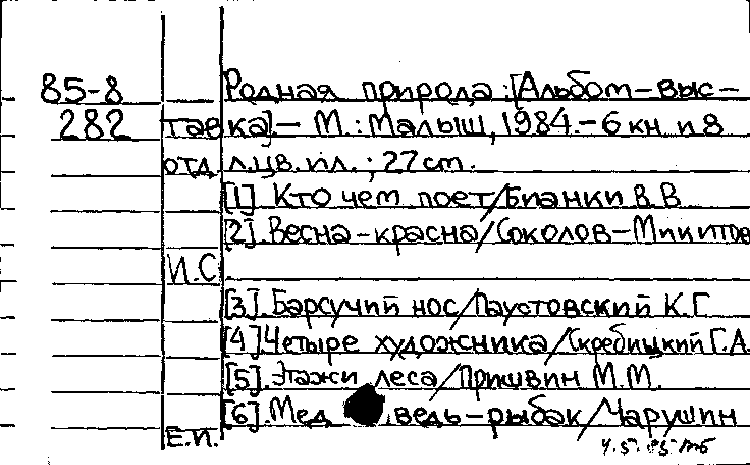 85-8 Родная природа: [Альбом-выс-
282 тавка].- М.: Малыш, 1984.- 6 кн. п 8
отд. л.цв.ил.; 27 cm.
[1]. Кто чем поет/Бианки В.В
[2]. Весна-красна/Соколов-Микитов
И.С.
[3]. Барсучий нос/Паустовский К.Г
[4]. Четыре художника/Скребицкий Г.А.
[5]. Этажи леса/Пришвин М.М.
[6]. Медведь-рыбак/Чарушин
Е.И.